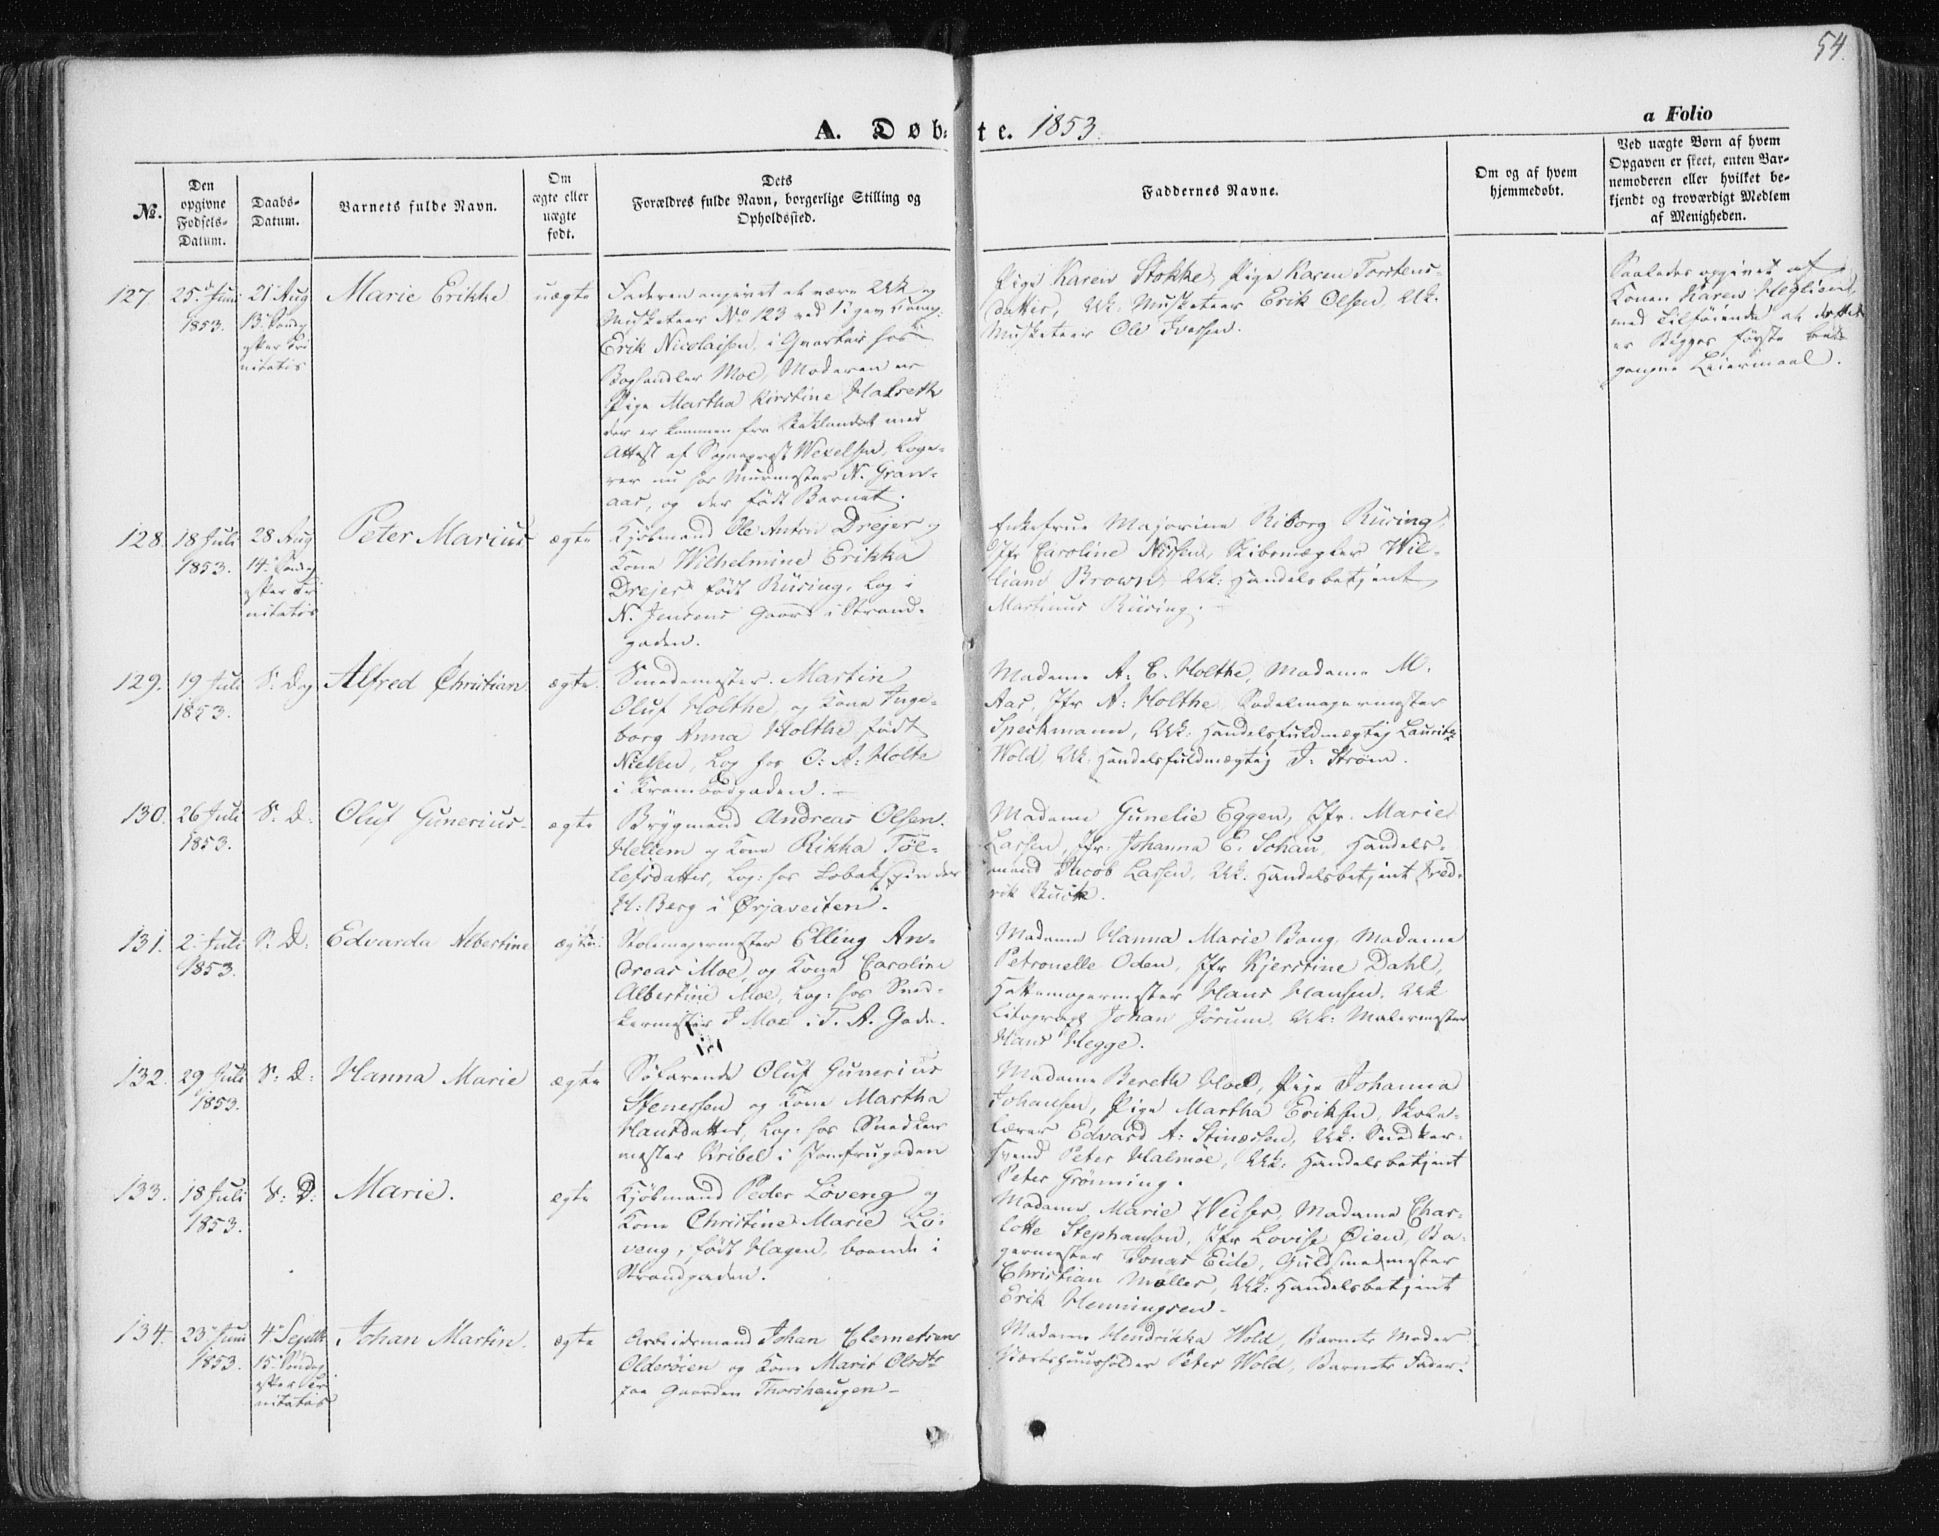 54.
A. Døbte. 1853.
a Folio
No.
Den opgivne Fødsels-Datum.
Daabs-Datum.
Barnets fulde Navn.
Om ægte eller uægte født.
Dets Forældres fulde Navn, borgerlige Stilling og Opholdssted.
Faddernes Navne.
Om og af hvem hjemmedøbt.
Ved uægte Børn af hvem Opgaven er skeet, enten Barnemoderen eller hvilket bekjendt og troværdigt Medlem af Menigheden.
127
25 Juni 1853.
21 Aug
13 Søndag efter Trinitatis
Marie Erikke
uægte
Faderen angivet at være Uk og
Musketeer No 123 ved
Erik Nicolaisen, i Qvarteer hos
Boghandler Moe, Moderen er
Pige Martha Kirstine Halseth
der er kommen fra med
Attest af Sognepræst Wexelsen, Loge-
rer nu hos Muurmester N. Gran-
aas, og der født Barnet.
Pige Karen Stokke, Pige Karen Torstens-
datter, Uk: Musketeer Erik Olsen, Uk:
Musketeer Ole Iversen.
Saaledes opgivet af
Konen Karen Heglien,
med Tilføiende at dette
er Begges første be-
gangne Leiermaal.
128.
18 Juli 1853.
28 Aug
14 Søndag efter Trinitatis
Peter Marius
ægte
Kjøbmand Ole Anton Drejer og
Kone Wilhelmine Erikka
Drejer født Rüsing, Log i
N. Jensens Gaard i Strand-
gaden.
Enkefrue Majorinde Riborg Rüsing,
Jfr Caroline Nissen, Skibsmægler Wil-
liam Brown, Uk: Handelsbetjent
Martinus Rüsing.
129.
19 Juli 1853.
S. Dag
Alfred Christian
ægte.
Smedemester Martin
Oluf Holthe, og Kone Inge-
borg Anna Holthe født
Nielsen, Log hos O: A: Holte
i Krambodgaden.
Madame A: E. Holthe, Madame M.
Aas, Jfr A: Holthe, Sadelmagermester
Speckmann, Uk: Handelsfuldmægtig Lauritz
Wold, Uk: Handelsfuldmægtig J. Strøm.
130.
26 Juli 1853.
S. D.
Oluf Gunerius
ægte
Brygmand Andreas Olsen
Hellem og Kone Rikka Tøl-
lefsdatter, Log: hos Tobakspinder
H: Berg i Ørjaveiten.
Madame Gunelie Eggen, Jfr. Marie
Larsen, Jfr. Johanna E. Schau, Handels-
mand Jacob Larsen, Uk: Handelsbetjent Fred-
rik
131.
2 Juli 1853.
S. D.
Edvarda Albertine
ægte:
Stolemagermester Elling An-
dreas Moe, og Kone Caroline
Albertine Moe, Log: hos Sned-
kermester J Moe i T. A. Gade.
Madame Hanna Marie Bang, Madame
Petronelle Oden, Jfr Kjerstine Dahl,
Hattemagermester Hans Hansen, Uk
Litograph Johan Jørum, Uk: Malermester
Hans Hegge.
132.
29 Juli 1853.
S. D.
Hanna Marie
ægte
Søfarende Oluf Gunerius
Stenersen og Kone Martha
Hansdatter, Log: hos Snedker
mester Kribel i Jomfrugaden
Madame Bereth Hoel, Pige Johanna
Johansen, Pige Martha Eriksen, Skole-
lærer Edvard A: Stinersen, Uk: Snedker-
svend Peter Halmøe, Uk: Handelsbetjent
Peter Grønning.
133.
18 Juli 1853.
S. D.
Marie.
ægte
Kjøbmand Peder Løveng og
Kone Christine Marie Lø-
veng, født Hagen, boende i
Strandgaden.
Madame Marie Weiser, Madame Char-
lotte Stephanson, Jfr Lovise Øien, Ba-
germester Jonas Eide, Guldsmedmester
Christian Møller, Uk: Handelsbetjent
Erik Henningsen.
134.
23 Juni 1853.
4 Septbr
15 Søndag efter Trinitatis
Johan Martin.
ægte
Arbeidsmand Johan Clemetsen
Olderøien og Kone Marit Olsdtr
paa Gaarden Thorshaugen
Madame Hendrikka Wold, Barnets Moder
Peter Wold, Barnets Fader.